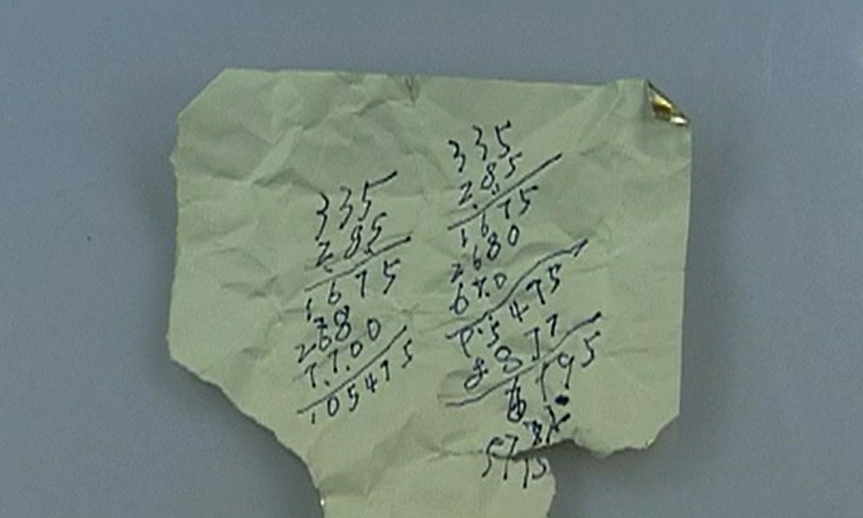 335
285
1675
268
7700
105475
335
285
1675
2680
670
95475
8877
6195